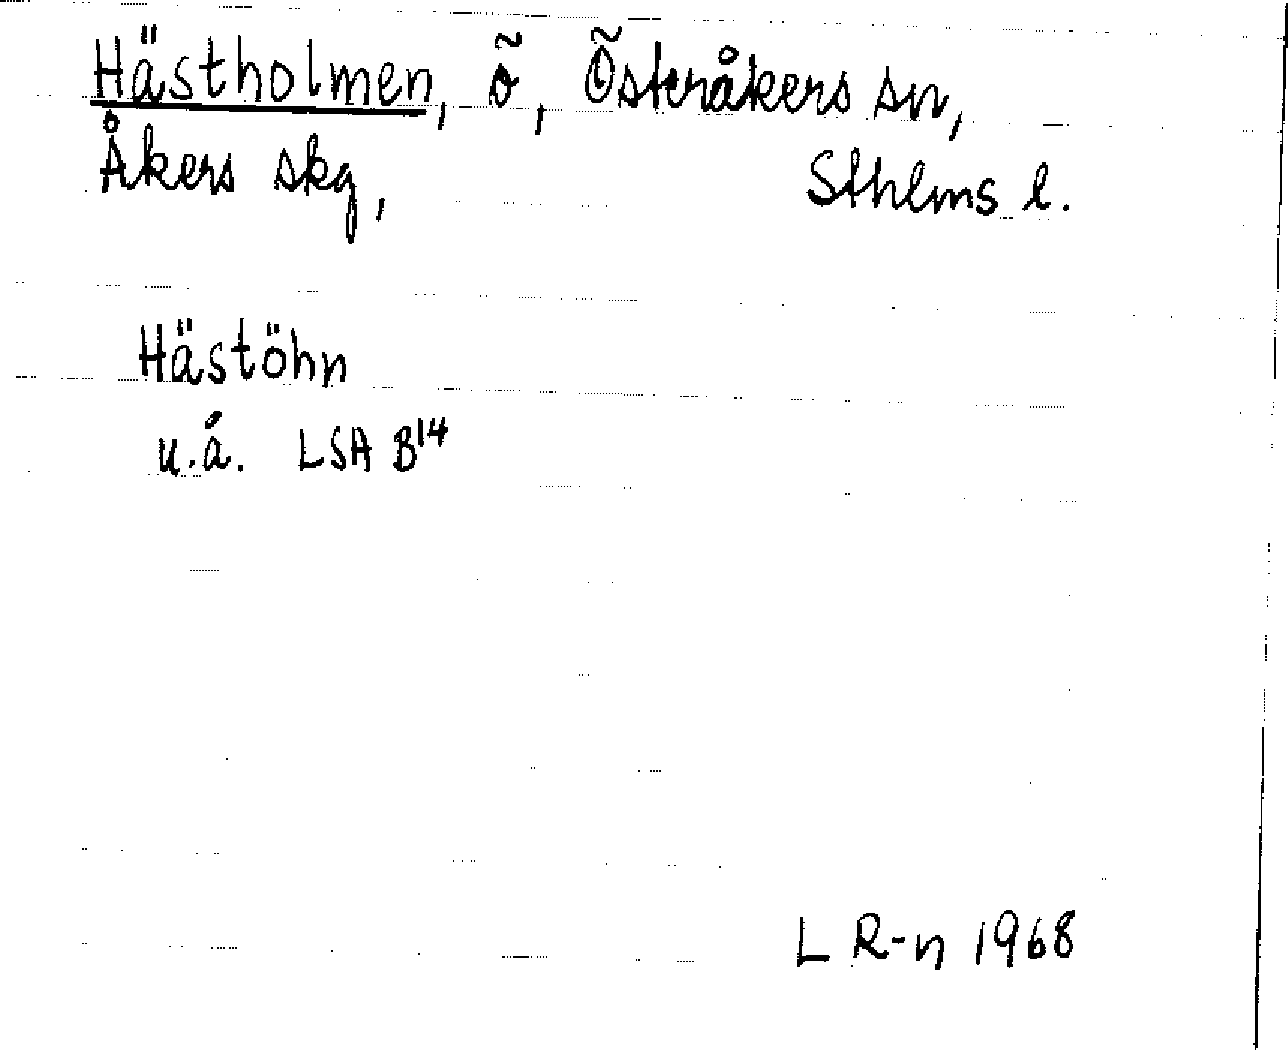 Hästholmen, ö, Österåkers sn,
Åkers skg, Sthlms l.
Hästöhn
u.å. LSA B14
L R-n 1968